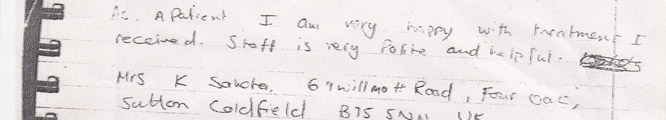 As. A Patient I am very happy with treatment I
received. Staff is very Polite and helpful.
Mrs K 69 willmott Road, Four oac,
Sutton Coldfield B75 5NN UK